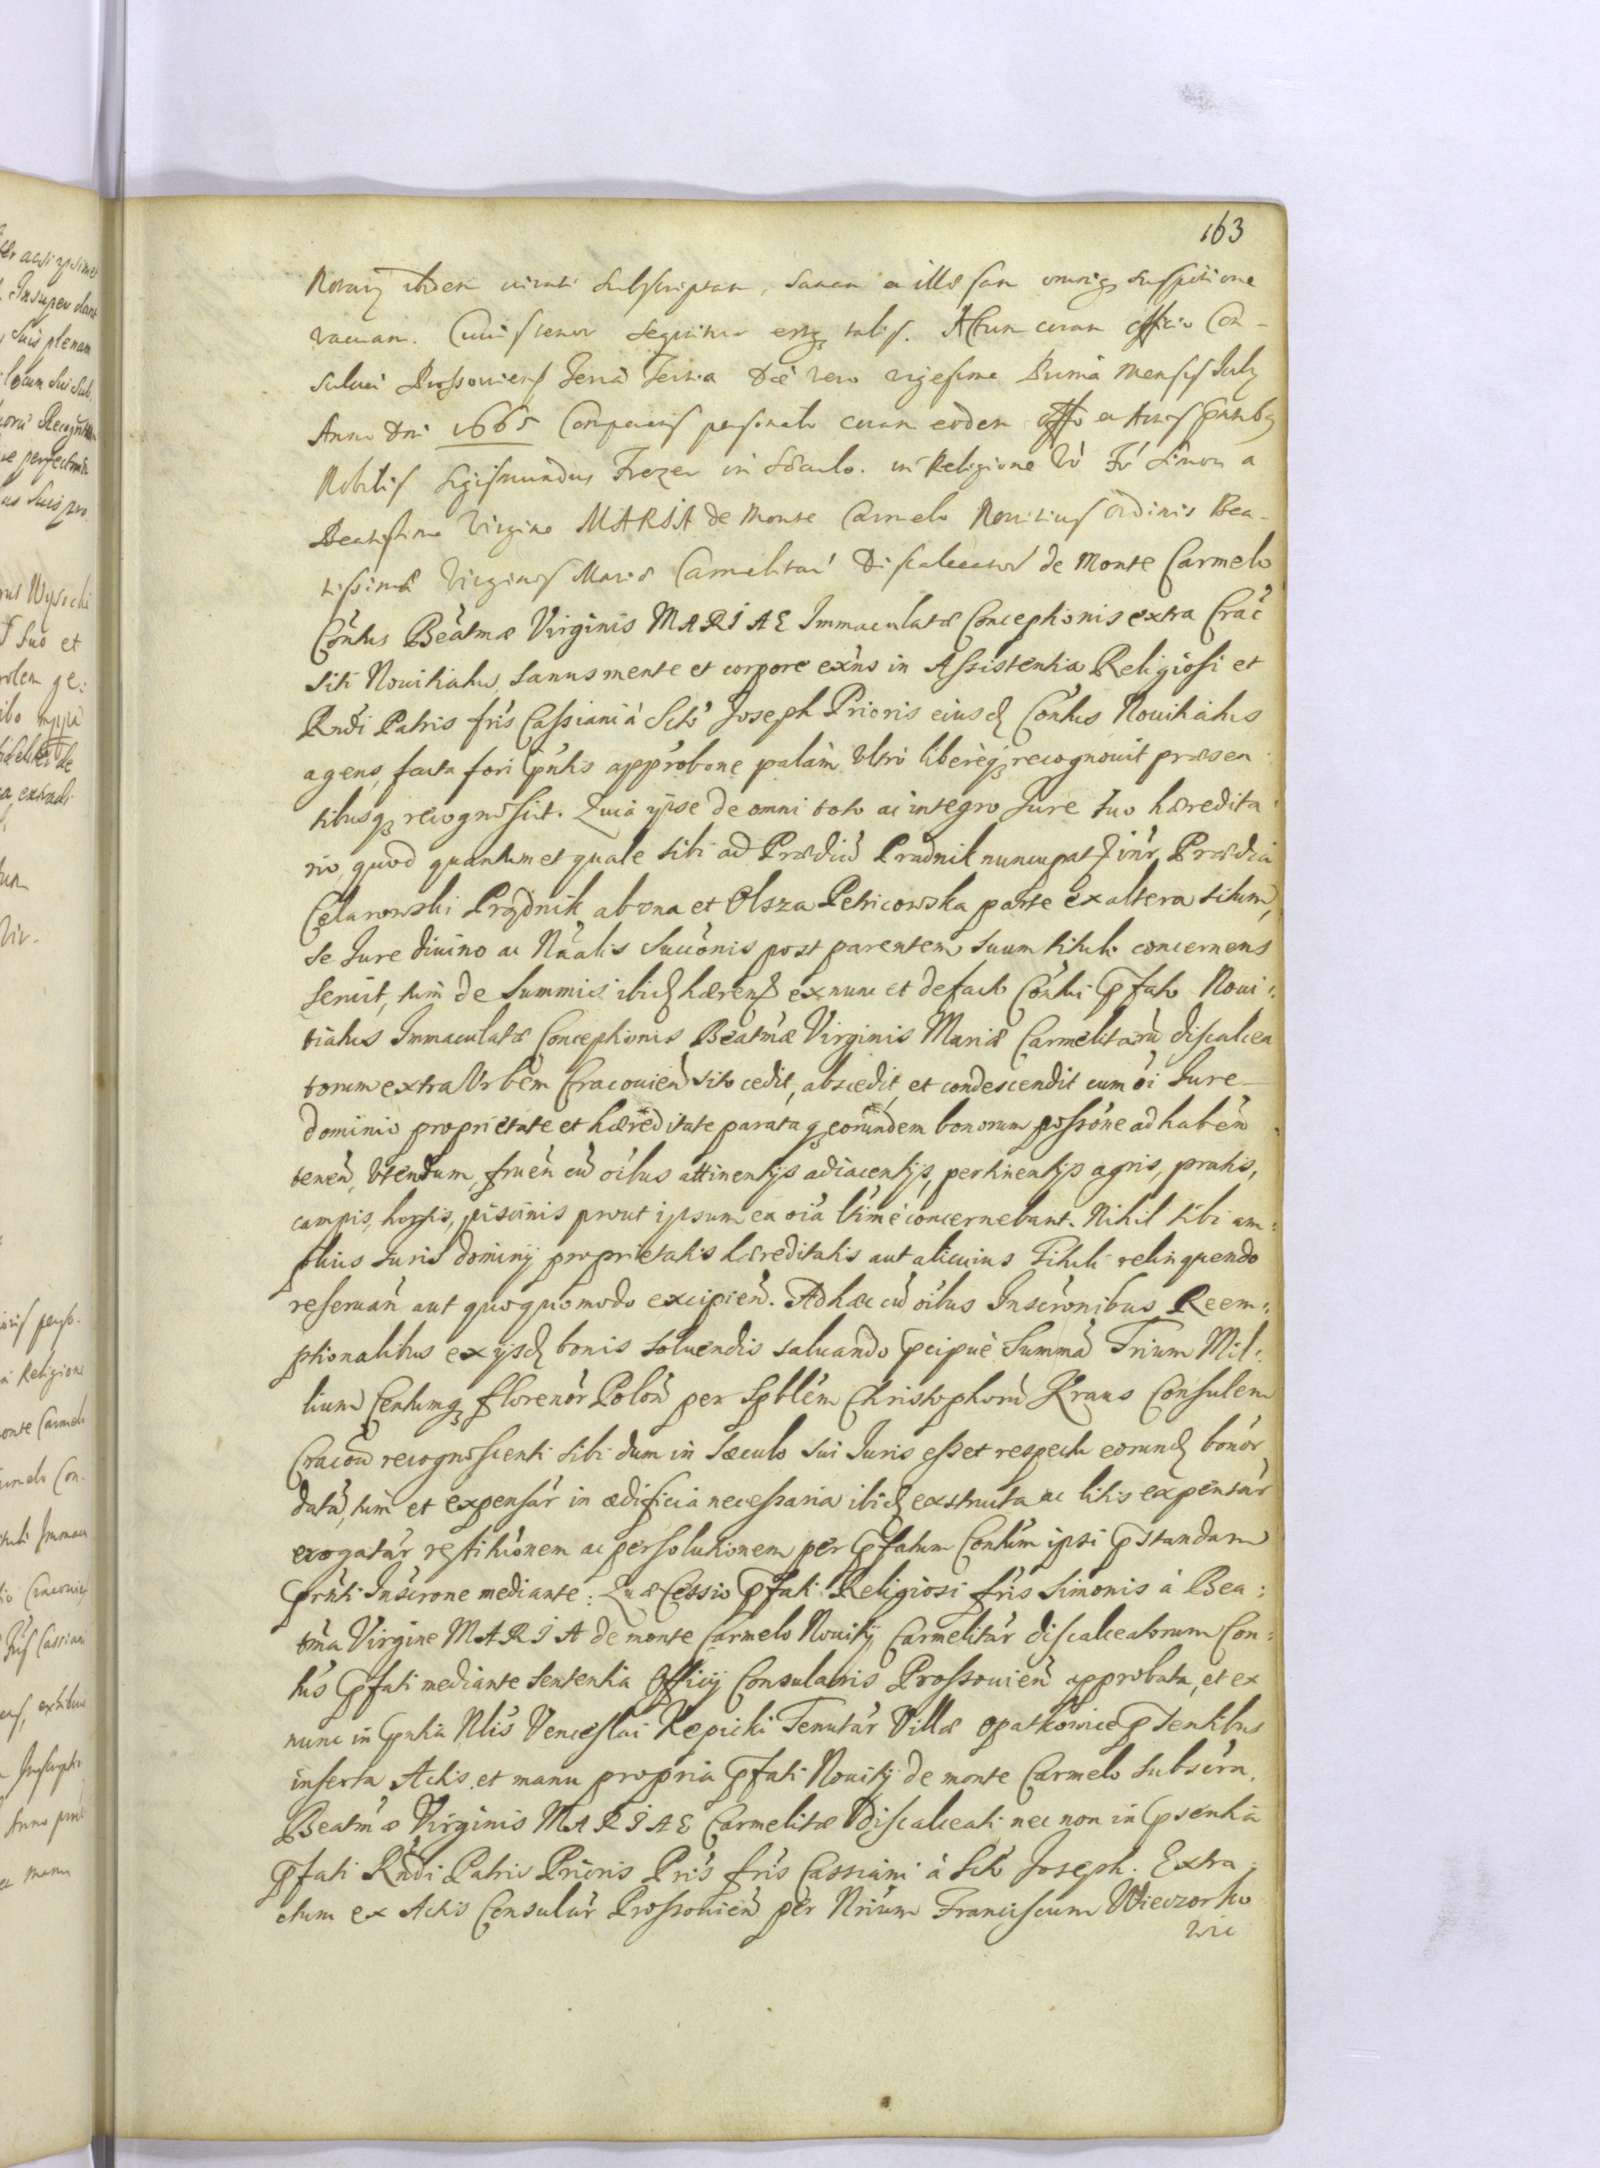 163
Notarij ibidem iurati subscriptam, sanam et illaesam omniq3 suspitione
vacuam. Cuius tenor sequitur estq3 talis. Actum coram officio Con-
sulari Prossouiens feria tertia die vero vigesima Prima mensis July
Anno Dni 1665 Comparens personaliter coram eodem offo et Actis pntibq3
Nobilis Sigismundus Frezer in Saeculo. in Religione Vo Fr Simon a
Beatissima Virgine MARIA de Monte Carmelo Nouitius ordinis Bea-
tissimae Virginis Mariae Carmelitar Discalceator de Monte Carmelo
Contus Beatmae Virginis MARIAE Immaculatae Conceptionis extra Crac
siti Nouitiatus, sanus mente et corpore exns in Assistentia Religiosi et
Rndi Patris fris Cassiani à Scto Joseph Prioris eiusd Contus Nouitiatus
agens, facta fori sui pntis approbone palàm vltro liberèq3 recognouit praesen
tibusq3 recognoscit. Quia ipse de omni toto ac integro Jure suo haeredita:
rio, quod quantum et quale sibi ad Praediu Prądnik nuncupat inr Praedia
Celarowski Prądnik ab vna et Olsza Petricowska parte ex altera situm,
se Jure diuino ac Nnalis Succonis post parentem suum tituli concernens
seruit, tum de summis ibid haerent ex nunc et de facto Contui pfato Noui:
tiatus Immaculatae Conceptionis Beatmae Virginis Mariae Carmelitaru discalcea
torum extra Vrbem Cracouien sito cedit, abscedit, et condescendit cum oi Jure
dominio proprietate et haereditate parataq3 eorundem bonorum possone ad haben
tenen, vtendum, fruen cu oibus attinentijs adiacentijs, pertinentijs agris, pratis,
campis, hortis, piscinis prout ipsum ea oia ltime concernebant. Nihil sibi am:
plius Juris dominij proprietatis haereditatis aut alicuius Tituli relinquendo
reseruan aut quoquomodo excipien. Ad haec cu oibus Inscronibus Reem:
ptionalibus ex ijsd bonis soluendis saluando pcipuè Summa Trium Mil:
lium Centumq3 florenor Polon per Spblem Christophoru Kraus Consulem
Cracou recognoscenti sibi dum in saeculo sui Juris esset respectu eorund bonor
datu, tum et expensar in aedificia necessaria ibid exstructa ac litis expensar
erogatar restitionem ac persolutionem per pfatum Contum ipsi pstandam
pnti Inscrone mediante: Quae Cessio pfati Religiosi fris Simonis à Bea:
tma Virgine MARIA de monte Carmelo Nouitij Carmelitar discalceatorum Con:
tus pfati mediante sententia Officij Consularis Prossouien approbata, et ex
nunc in pntia Nlis Venceslai Kępicki Tenutar Villae Opatkowice pstentibus
inserta Actis et manu propria pfati Nouitij de monte Carmelo subscra.
Beatmae Virginis MARIAE Carmelitae Discalceati nec non in psentia
pfati Rndi Patris Prioris Pris fris Cassiani à Scto Joseph. Extra:
ctum ex Actis Consular Prossouien per Nrium Franciscum Wieczorko
wic